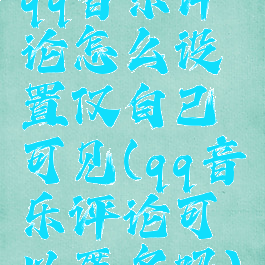 qq音乐评
论怎么设
置仅自己
可见(qq音
乐评论可
以匿名吗)